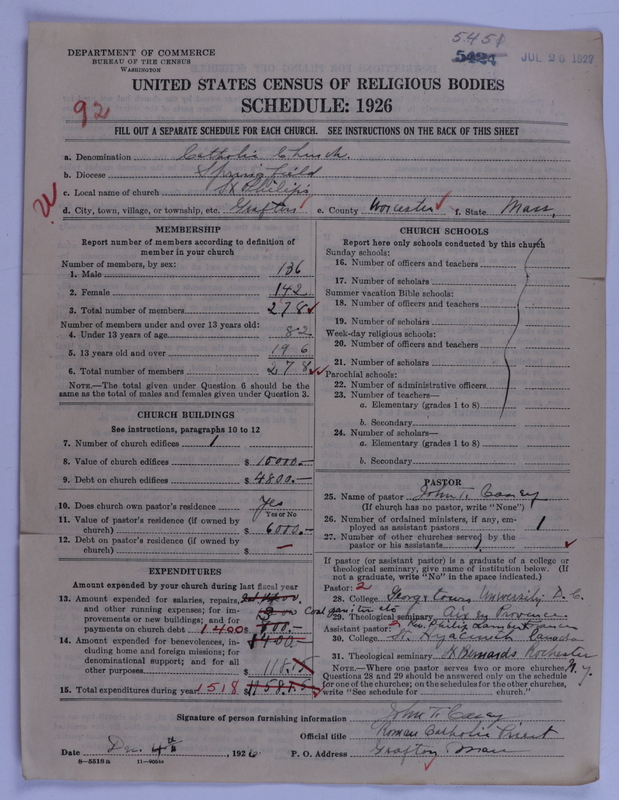 5451
5424 JUL 26 1927
DEPARTMENT OF COMMERCE
BUREAU OF THE CENSUS
WASHINGTON
UNITED STATES CENSUS OF RELIGIOUS BODIES
SCHEDULE: 1926
92
FILL OUT A SEPARATE SCHEDULE FOR EACH CHURCH. SEE INSTRUCTIONS ON THE BACK OF THIS SHEET
a. Denomination Catholic Church.
b. Diocese Springfield
c. Local name of church St Philips
d. City, town, village, or township, etc. Grafton e. County Worcester f. State Mass,
MEMBERSHIP
Report number of members according to definition of
member in your church
Number of members, by sex:
1. Male 136
2. Female 142
3. Total number of members 278
Number of members under and over 13 years old:
4. Under 13 years of age 82
5. 13 years old and over 196
6. Total number of members 278
NOTE.—The total given under Question 6 should be the
same as the total of males and females given under Question 3.
CHURCH BUILDINGS
See instructions, paragraphs 10 to 12
7. Number of church edifices 1
8. Value of church edifices $ 15000.—
9. Debt on church edifices $ 4800.—
10. Does church own pastor's residence Yes
Yes or No
11. Value of pastor's residence (if owned by
church) $ 6000.—
12. Debt on pastor's residence (if owned by
church) $ —
EXPENDITURES
Amount expended by your church during last fiscal year
13. Amount expended for salaries, repairs,
and other running expenses; for im-
provements or new buildings; and for
payments on church debt 1400 $
14. Amount expended for benevolences, in-
cluding home and foreign missions; for
denominational support; and for all
other purposes 118
15. Total expenditures during year 1518 $
CHURCH SCHOOLS
Report here only schools conducted by this church
Sunday schools:
16. Number of officers and teachers
17. Number of scholars
Summer vacation Bible schools:
18. Number of officers and teachers
19. Number of scholars
Week-day religious schools:
20. Number of officers and teachers
21. Number of scholars
Parochial schools:
22. Number of administrative officers
23. Number of teachers—
a. Elementary (grades 1 to 8)
b. Secondary
24. Number of scholars—
a. Elementary (grades 1 to 8)
b. Secondary
PASTOR
25. Name of pastor John T. Casey
(If church has no pastor, write "None")
26. Number of ordained ministers, if any, em-
ployed as assistant pastors 1
27. Number of other churches served by the
pastor or his assistants 1
If pastor (or assistant pastor) is a graduate of a college or
theological seminary, give name of institution below. (If
not a graduate, write "No" in the space indicated.)
Pastor: 2
28. College Georgetown University D.C.
29. Theological seminary Aix en Provence
Assistant pastor:
30. College St. Hyacinth Canada
31. Theological seminary St Bernards Rochester
N.Y.
NOTE.—Where one pastor serves two or more churches,
Questions 28 and 29 should be answered only on the schedule
for one of the churches; on the schedules for the other churches,
write "See schedule for church."
Signature of person furnishing information John T. Casey
Official title Roman Catholic Priest
Date Dec. 4th, 1926 P. O. Address Grafton Mass
8-5518a 11-9054a